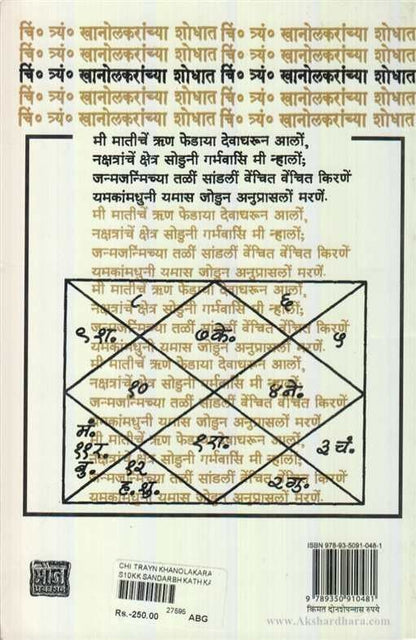 चिं० त्र्यं० खानोलकरांच्या शोधात चिं० त्र्यं० खानोलकरांच्या शोधात
चिं० त्र्यं० खानोलकरांच्या शोधात चिं० त्र्यं० खानोलकरांच्या शोधात
चिं० त्र्यं० खानोलकरांच्या शोधात चिं० त्र्यं० खानोलकरांच्या शोधात
चिं० त्र्यं० खानोलकरांच्या शोधात चिं० त्र्यं० खानोलकरांच्या शोधात
चिं० त्र्यं० खानोलकरांच्या शोधात चिं० त्र्यं० खानोलकरांच्या शोधात
मी मातीचें ऋण फेडाया देवाघरून आलों,
नक्षत्रांचें क्षेत्र सोडुनी गर्भवासिं मी न्हालों;
जन्मजन्मिंच्या तळीं सांडलीं वेंचित वेंचित किरणें
यमकांमधुनी यमास जोडून अनुप्रासलों मरणें.
मी मातीचें ऋण फेडाया देवाघरून आलों,
नक्षत्रांचें क्षेत्र सोडुनी गर्भवासिं मी न्हालों;
जन्मजन्मिंच्या तळीं सांडलीं वेंचित वेंचित किरणें
यमकांमधुनी यमास जोडून अनुप्रासलों मरणें.
मी मातीचें ऋण फेडाया देवाघरून आलों,
नक्षत्रांचें क्षेत्र सोडुनी गर्भवासिं मी न्हालों;
जन्मजन्मिंच्या तळीं सांडलीं वेंचित वेंचित किरणें
यमकांमधुनी यमास जोडून अनुप्रासलों मरणें.
मी मातीचें ऋण फेडाया देवाघरून आलों,
नक्षत्रांचें क्षेत्र सोडुनी गर्भवासिं मी न्हालों;
जन्मजन्मिंच्या तळीं सांडलीं वेंचित वेंचित किरणें
यमकांमधुनी यमास जोडून अनुप्रासलों मरणें.
मी मातीचें ऋण फेडाया देवाघरून आलों,
नक्षत्रांचें क्षेत्र सोडुनी गर्भवासिं मी न्हालों;
जन्मजन्मिंच्या तळीं सांडलीं वेंचित वेंचित किरणें
यमकांमधुनी यमास जोडून अनुप्रासलों मरणें.
८ ६
९ श. ७ के. ५
१० ४ ने.
मं.
११ र. १ रा. ३ चं.
बु. १२
ह. शु. २ गु.
ISBN 978-93-5091-048-1
मौज
प्रकाशन
CHI TRAYN KHANOLAKARA
S10KK SANDARBH KATH KA
Rs.-250.00 27595 ABG
9 789350 910481
किंमत दोनशेपन्नास रुपये
www.Akshardhara.com